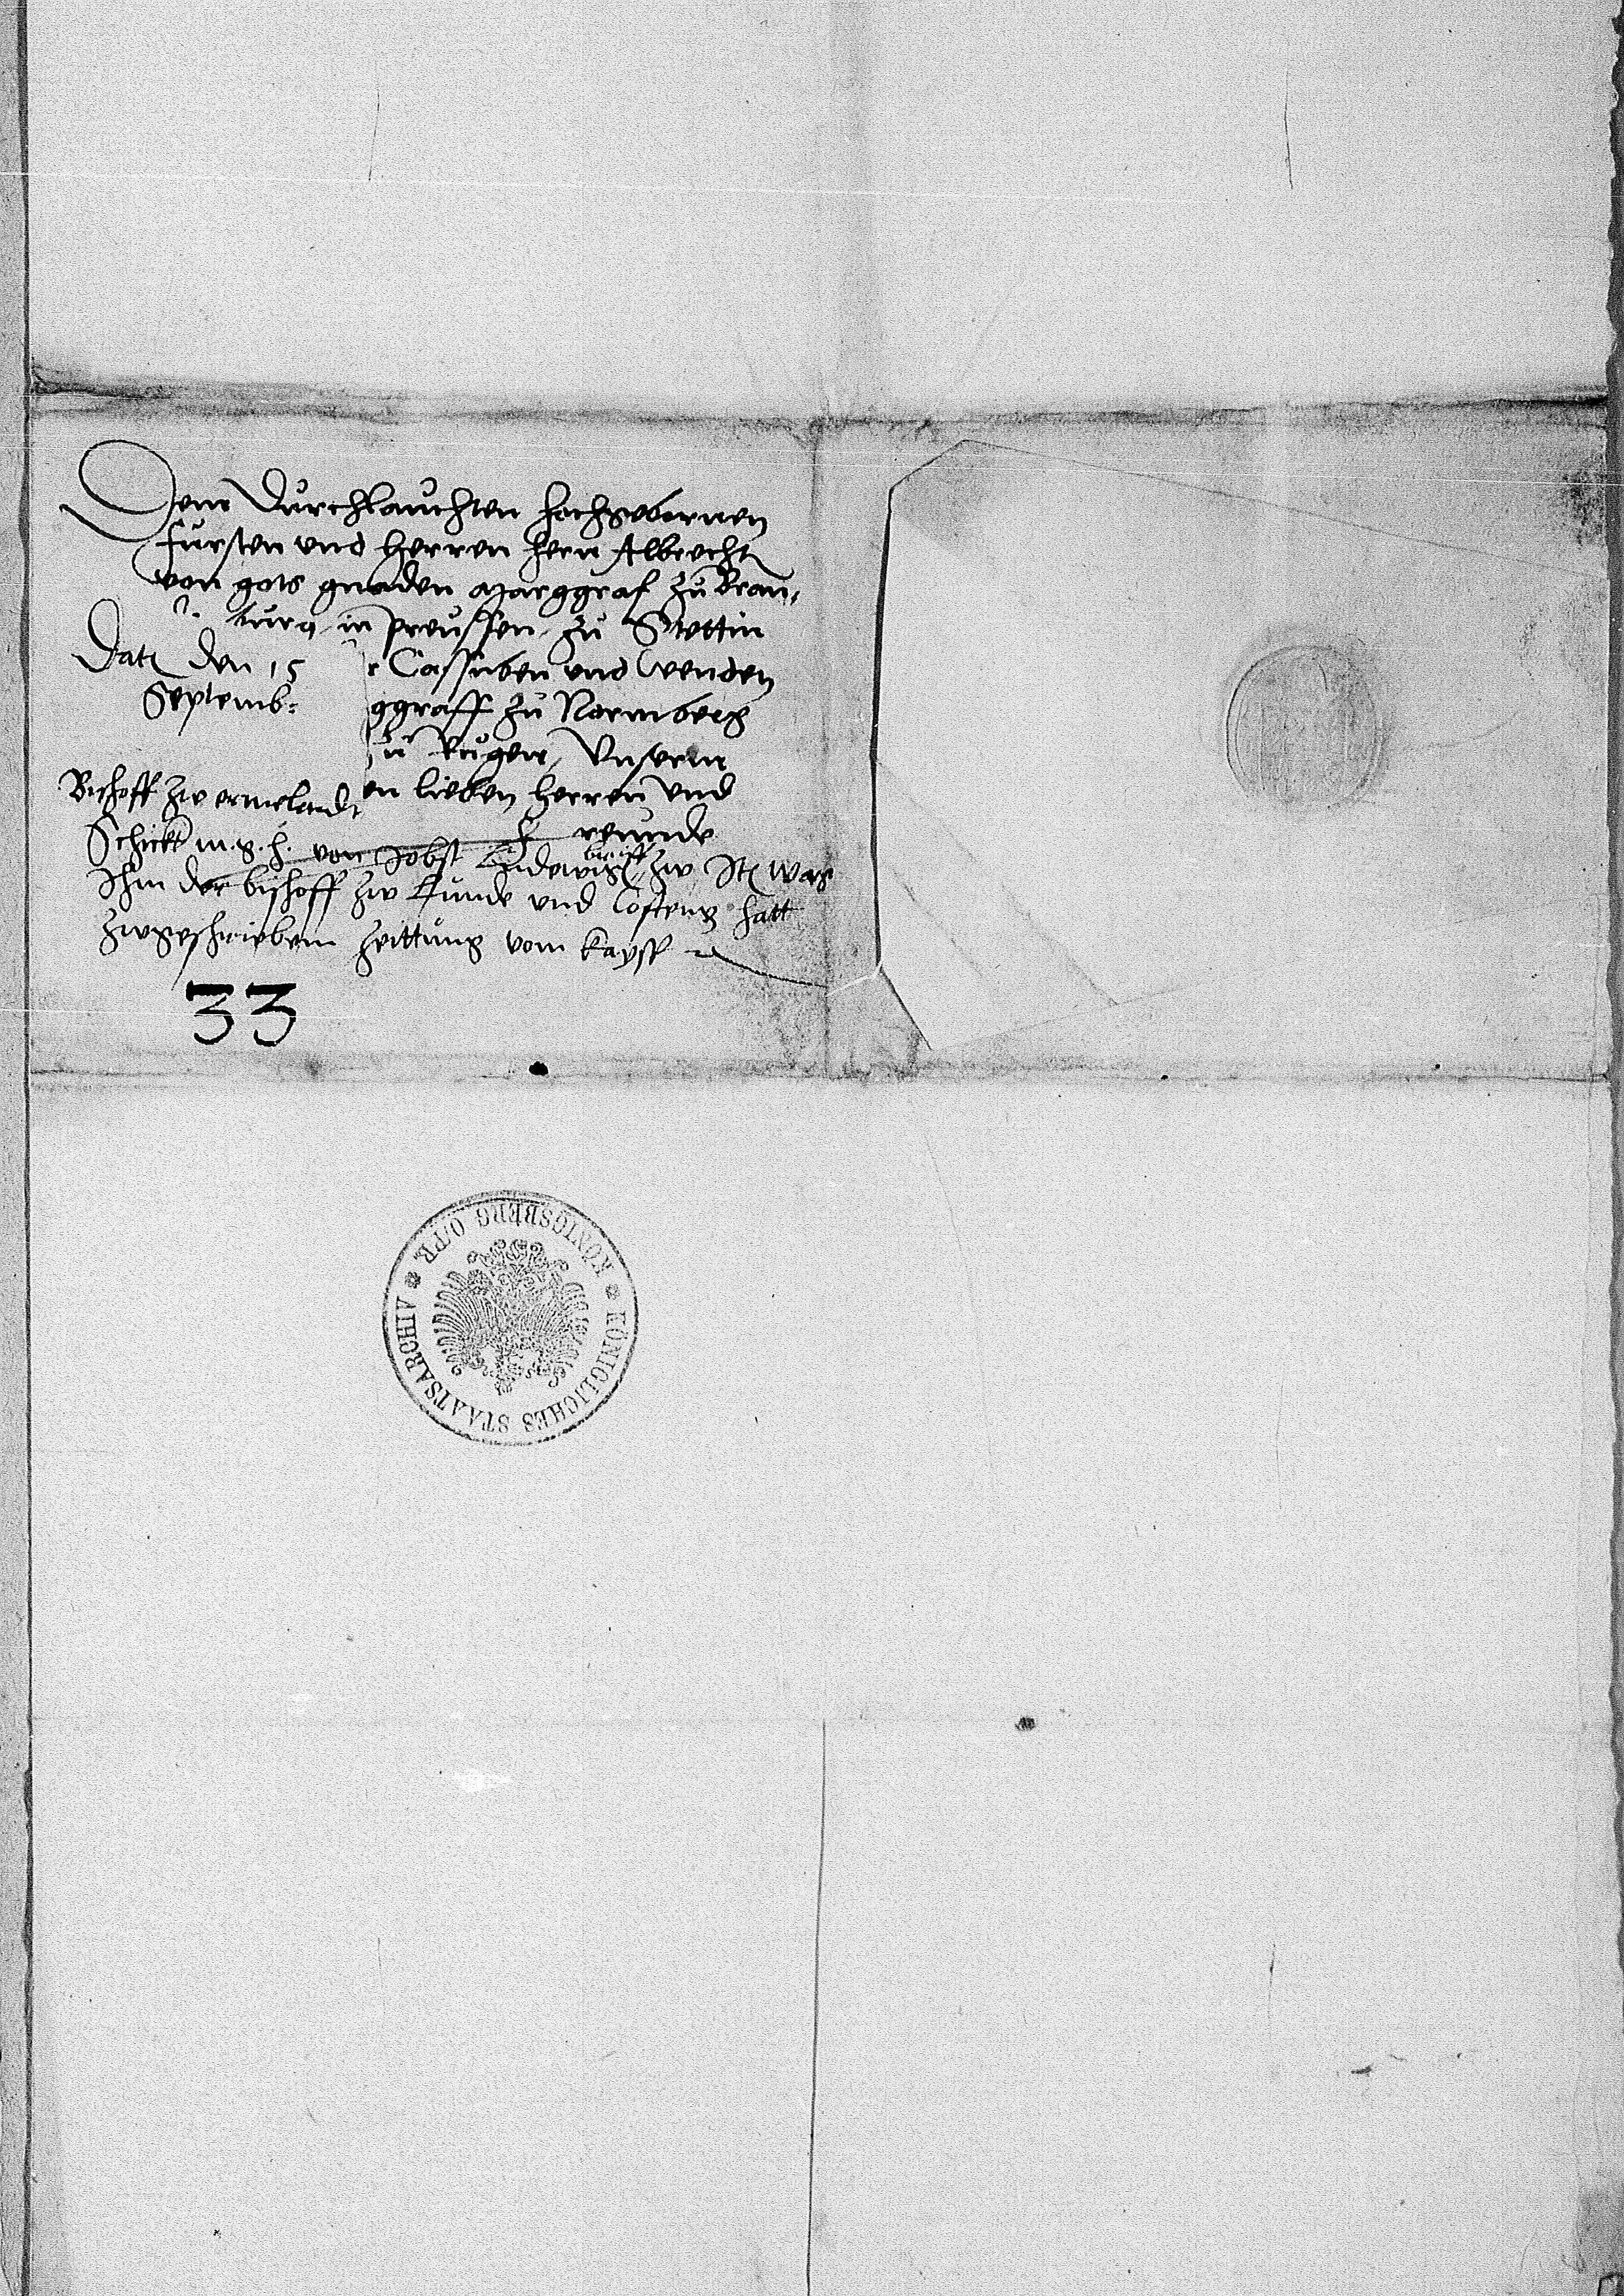 Dem Durchlauchten hochgebornen
fursten und herren hern Albrecht
von gots gnaden Marggraf zu Bran,
burg in Preussen, zu Stettin
r Cassuben und Wenden
ggraff zu Normberg
zu Rugen, Unserm
en lieben herren und
freunde
Dat den 15
Septemb:
Bischoff zw ermelandt
Schickt m. g. h. von Jobst Ludewig brieff zw It was
Ihm der bischoff zw Lunde und Costentz hatt
zwgeschrieben zeittung vom kayss
33
KÖNIGLICHES STAATSARCHIV
KÖNIGSBERG O/PR.